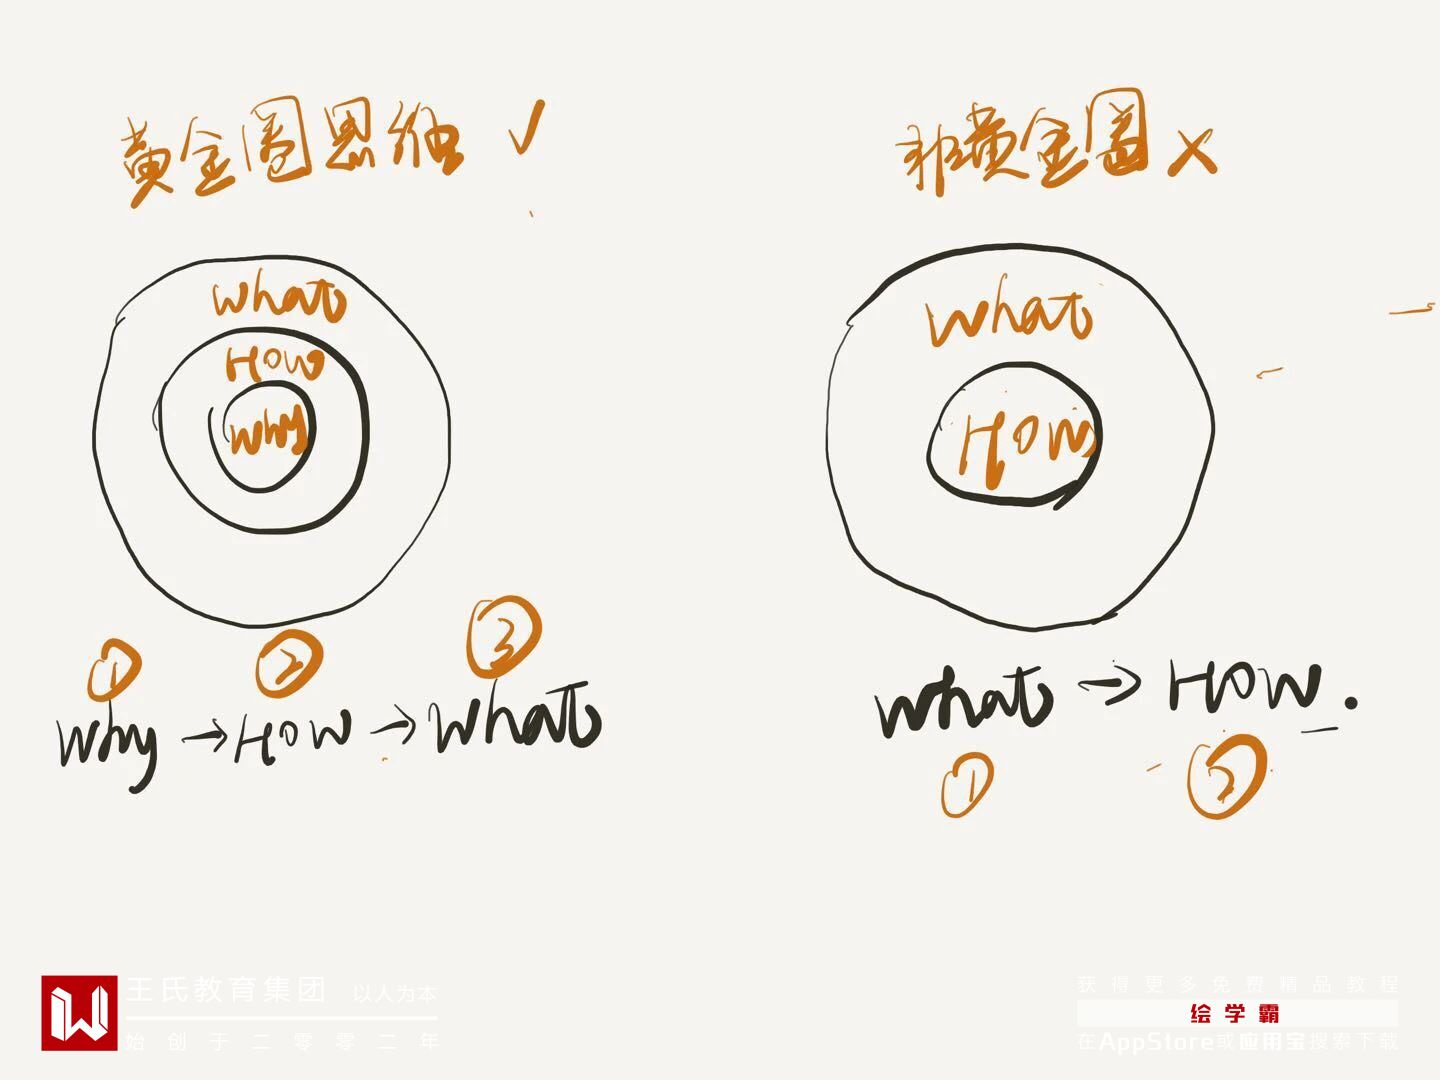 黄金圈思维 ✓
What
How
Why
① ② ③
Why → How → What
非黄金圈 ×
What
How
What → How.
① ②
王氏教育集团 以人为本
始创于二零零二年
获得更多免费精品教程
绘学霸
在AppStore或应用宝搜索下载